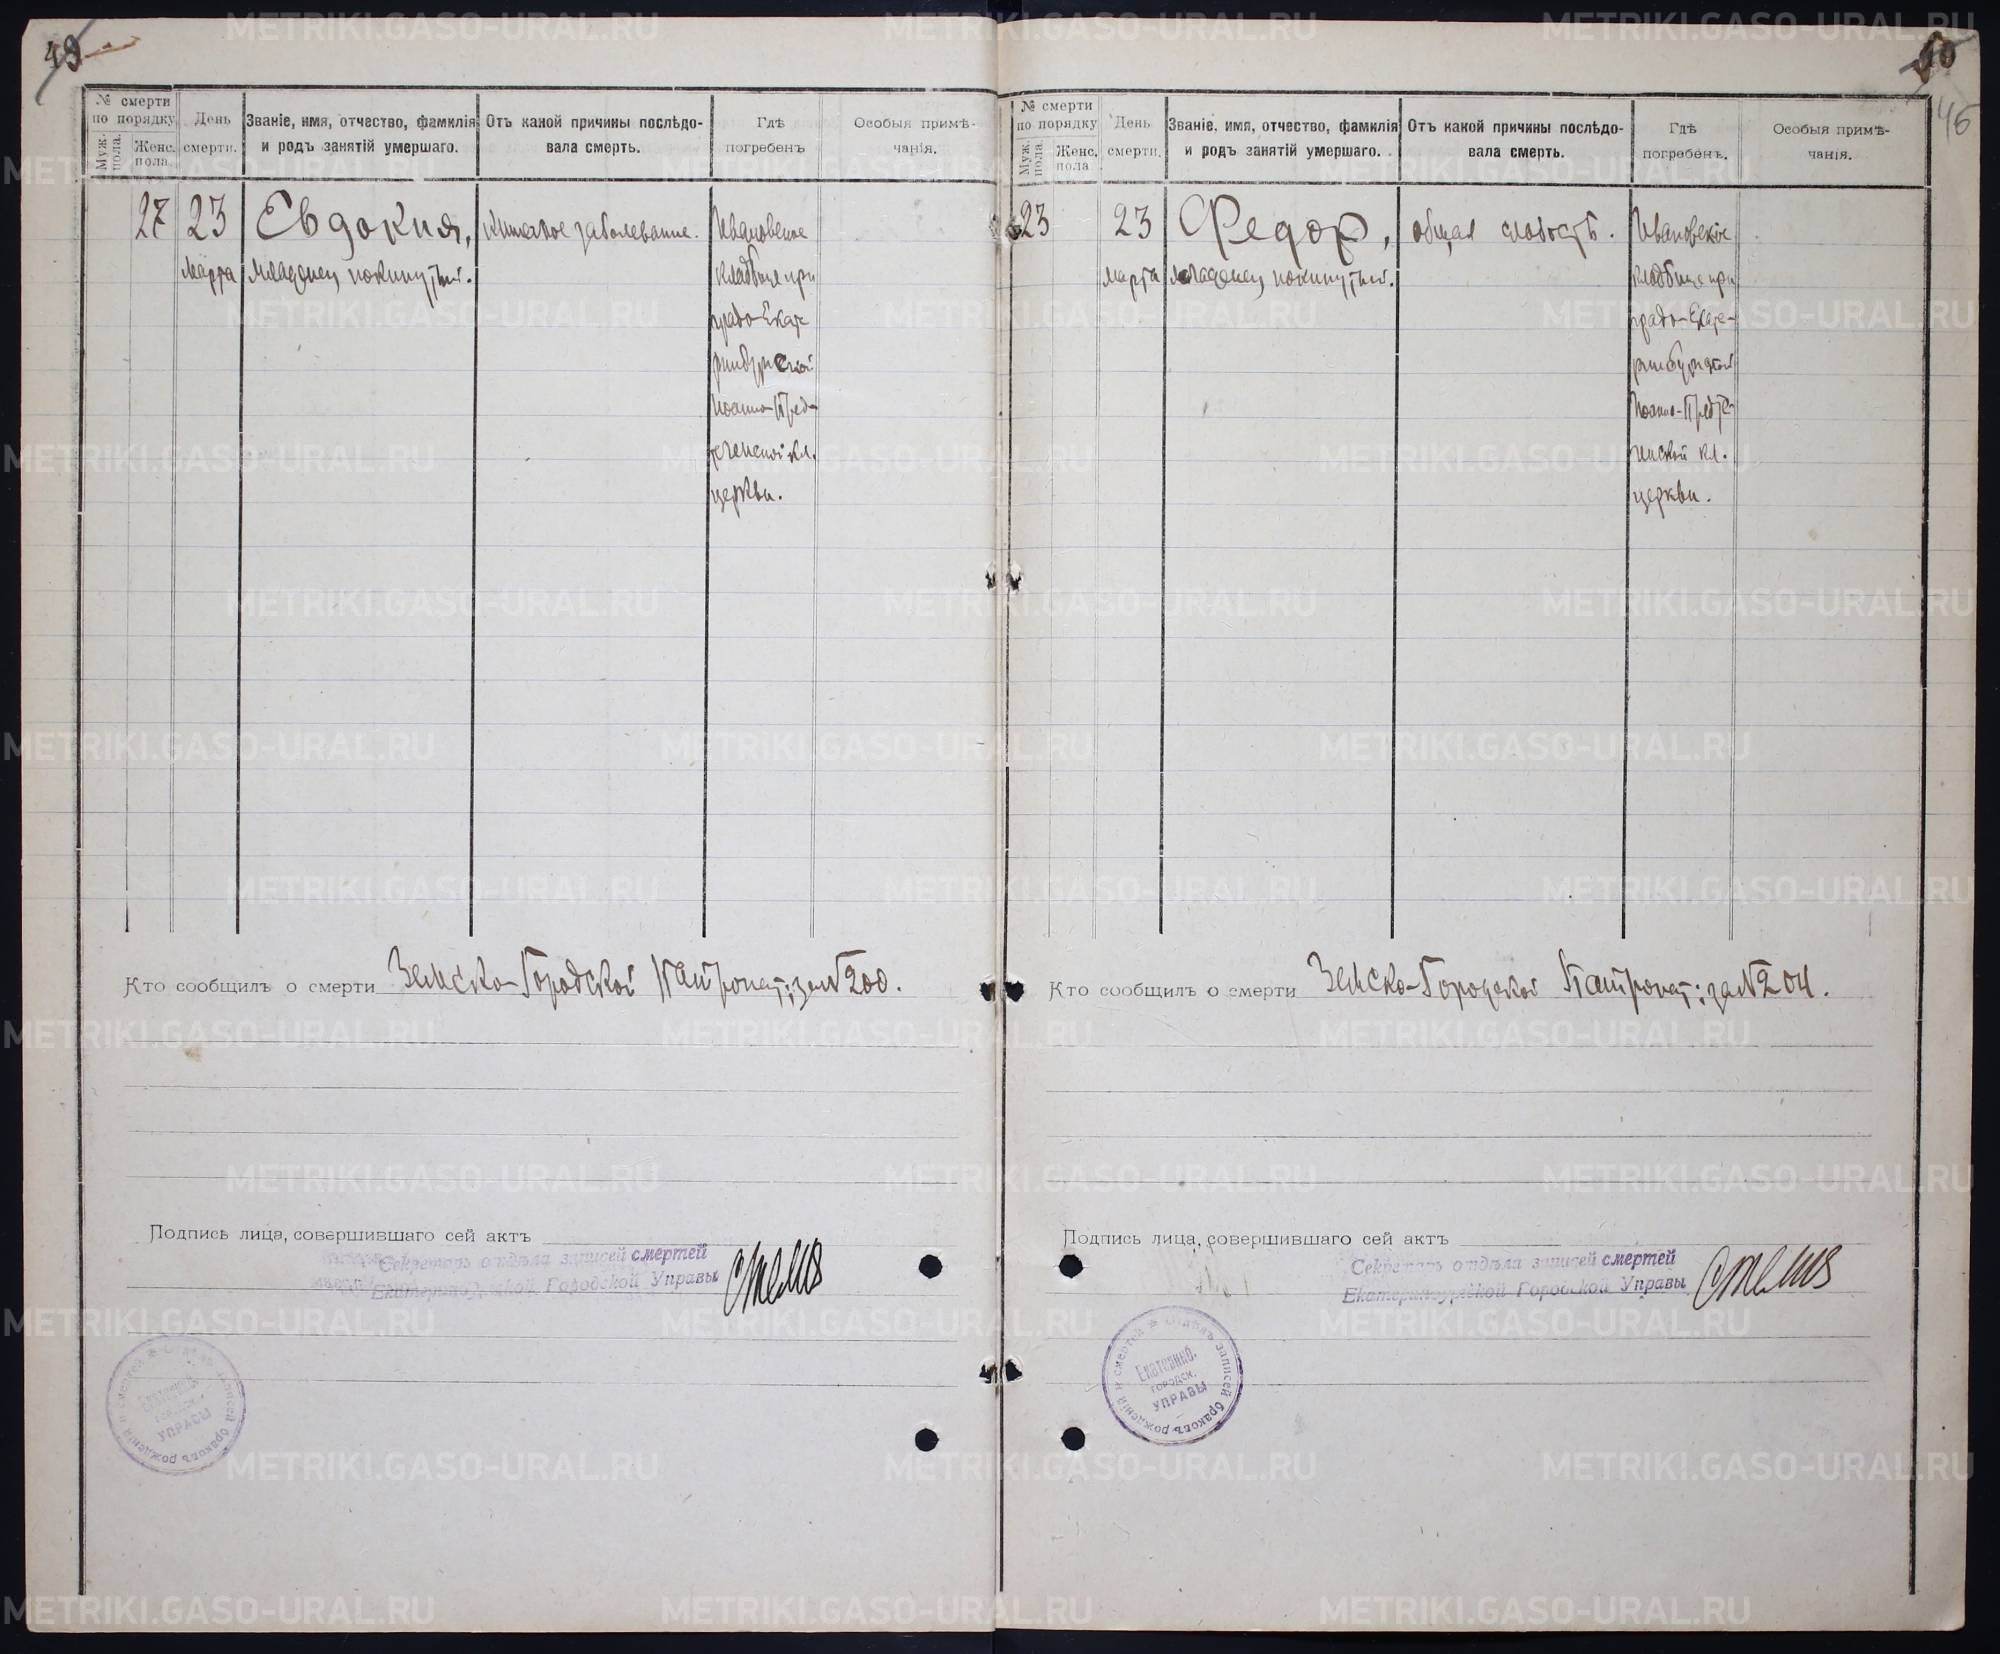 49
№ смерти по порядку
Муж. пола.
Женс. пола.
День смерти.
Званіе, имя, отчество, фамилія и родъ занятій умершаго.
Отъ какой причины послѣдовала смерть.
Гдѣ погребенъ
Особыя примѣчанія.
27
23 Марта
Евдокия,
младенец покинутый.
кишечное заболевание.
Ивановское
кладбище при
градо-Екате
ринбургской
Иоанно-Пред-
теченской кл.
церкви.
Кто сообщилъ о смерти Земско-Городской Патронат: за № 200.
Подпись лица, совершившаго сей актъ
Секретарь отдѣла записей смертей
Екатеринбургской Городской Управы
Отдѣлъ записей браковъ рожденій и смертей
Екатеринб.
городск.
УПРАВЫ
50
46
№ смерти по порядку
Муж. пола.
Женс. пола.
День смерти.
Званіе, имя, отчество, фамилія и родъ занятій умершаго.
Отъ какой причины послѣдовала смерть.
Гдѣ погребенъ.
Особыя примѣчанія.
23
23 марта
Федор,
младенец покинутый.
общая слабость.
Ивановское
кладбище при
градо-Екате-
ринбургской
Иоанно-Предте-
ченской кл.
церкви.
Кто сообщилъ о смерти Земско-Городской Патронат: за № 204.
Подпись лица, совершившаго сей актъ
Секретарь отдѣла записей смертей
Екатеринбургской Городской Управы
Отдѣлъ записей браковъ рожденій и смертей
Екатеринб.
городск.
УПРАВЫ
METRIKI.GASO-URAL.RU